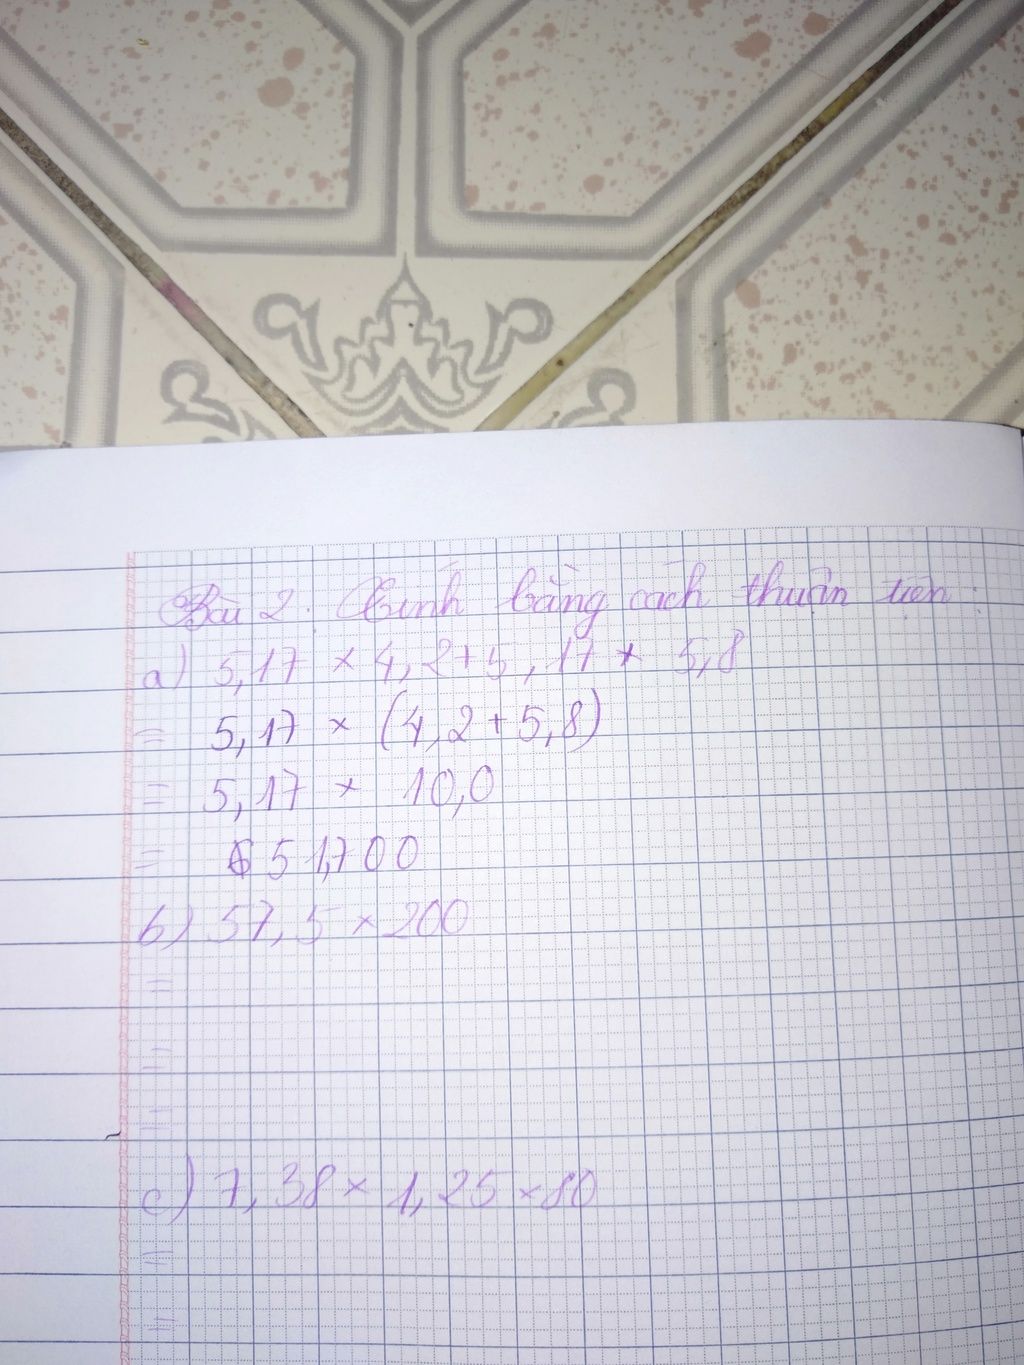 Bài 2. Tính bằng cách thuận tiện.
a) 5,17 × 4,2 + 5,17 × 5,8
= 5,17 × (4,2 + 5,8)
= 5,17 × 10,0
= 51,700
b) 57,5 × 200
=
=
=
c) 7,38 × 1,25 × 80
=
=